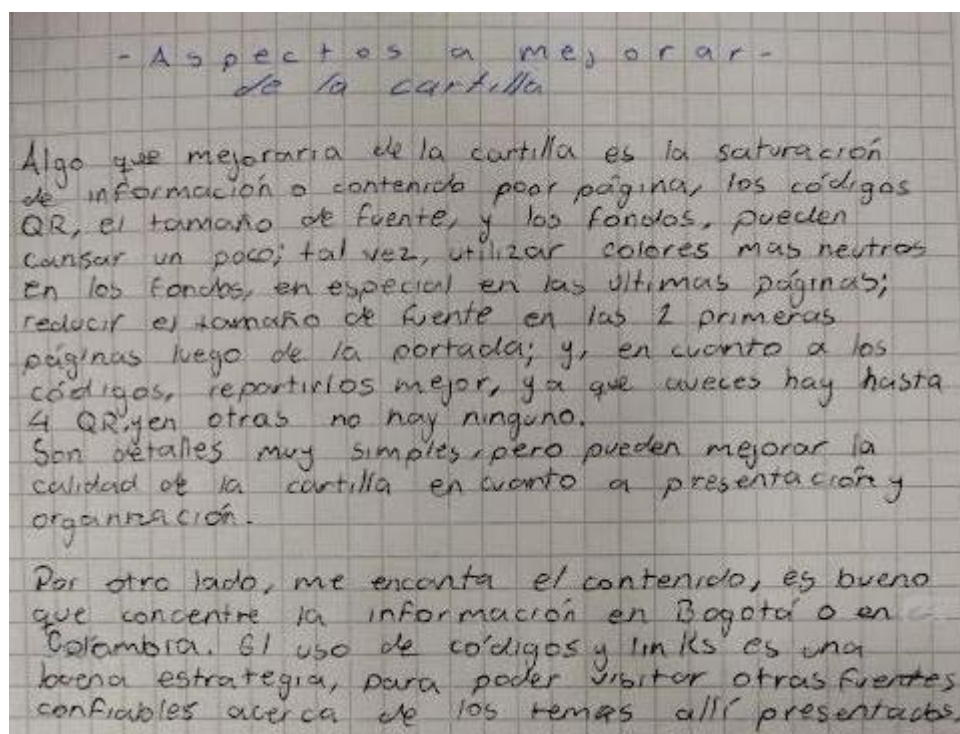 - Aspectos a mejorar -
de la cartilla
Algo que mejoraria de la cartilla es la saturación
de información o contenido poor página, los códigos
QR, el tamaño de fuente, y los fondos, pueden
cansar un poco; tal vez, utilizar colores mas neutros
en los fondos, en especial en las ultimas páginas;
reducir el tamaño de fuente en las 2 primeras
páginas luego de la portada; y, en cuanto a los
códigos, repartirlos mejor, ya que aveces hay hasta
4 QR, y en otras no hay ninguno.
Son detalles muy simples, pero pueden mejorar la
calidad de la cartilla en cuanto a presentación y
organización.
Por otro lado, me encanta el contenido, es bueno
que concentre la información en Bogotá o en
Colombia. El uso de códigos y links es una
buena estrategia, para poder visitar otras fuentes
confiables acerca de los temas allí presentados.